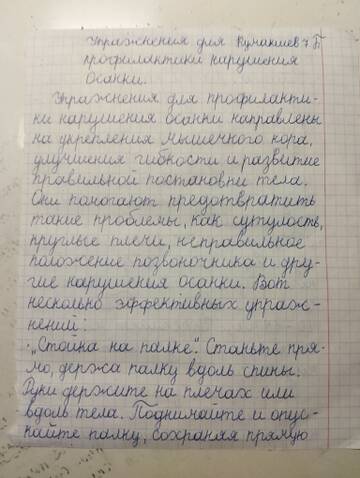 Упражнения для Кумакшев 7Б
профилактики нарушения
осанки.
Упражнения для профилакти-
ки нарушения осанки направлены
на укрепления мышечного кора,
улучшения гибкости и развитие
правильной постановки тела.
Они помогают предотвратить
такие проблемы, как сутулость,
круглые плечи, неправильное
положение позвоночника и дру-
гие нарушения осанки. Вот
несколько эффективных упраж-
нений:
· „Стойка на палке". Станьте пря-
мо, держа палку вдоль спины.
Руки держите на плечах или
вдоль тела. Поднимайте и опус-
кайте палку, сохраняя прямую